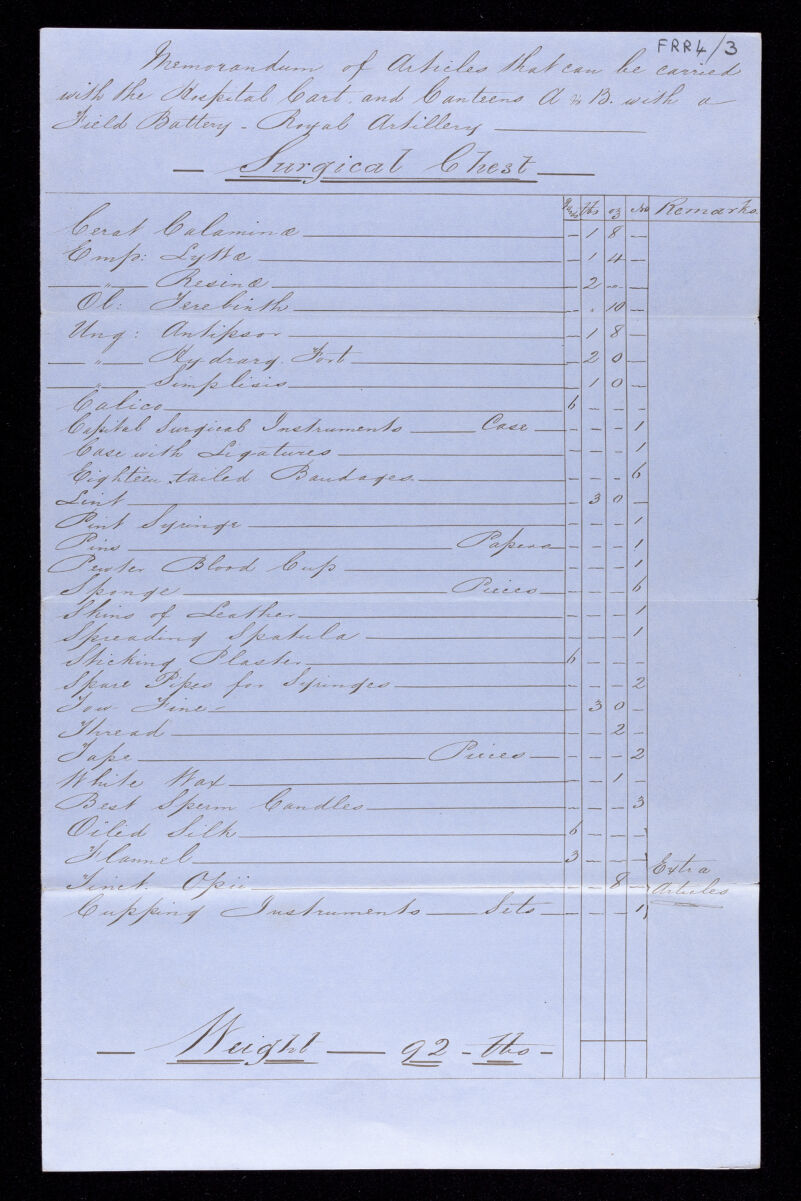 FRR4/3
Memorandum of Articles that can be carried
with the Hospital Cart. and Canteens A & B. with a
Field Battery - Royal Artillery
Surgical Chest
Yards lbs oz No Remarks.
Cerat Calaminæ - 1 8 -
Emp: Lyttæ - 1 4 -
" Resinæ - 2 " -
Ol: Terebinth - " 10 -
Ung: Antipsor - 1 8 -
" Hydrarg. Fort - 2 0 -
" Simplisis - 1 0 -
Calico 6 - - -
Capital Surgical Instruments Case - - - 1
Case with Ligatures - - - 1
Eighteen tailed Bandages - - - 6
Lint - 3 0 -
Pint Syringe - - - 1
Pins Papers - - - 1
Pewter Blood Cup - - - 1
Sponge Pieces - - - 6
Skins of Leather - - - 1
Spreading Spatula - - - 1
Sticking Plaster 6 - - -
Spare Pipes for Syringes - - - 2
Tow Fine - 3 0 -
Thread - - 2 -
Tape Pieces - - - 2
White Wax - - 1 -
Best Sperm Candles - - - 3
Oiled Silk 6 - - -
Flannel 3 - - -
Tinct. Opii - - 8 -
Cupping Instruments Sets - - - 1
Extra
Articles
Weight - 92 - lbs -